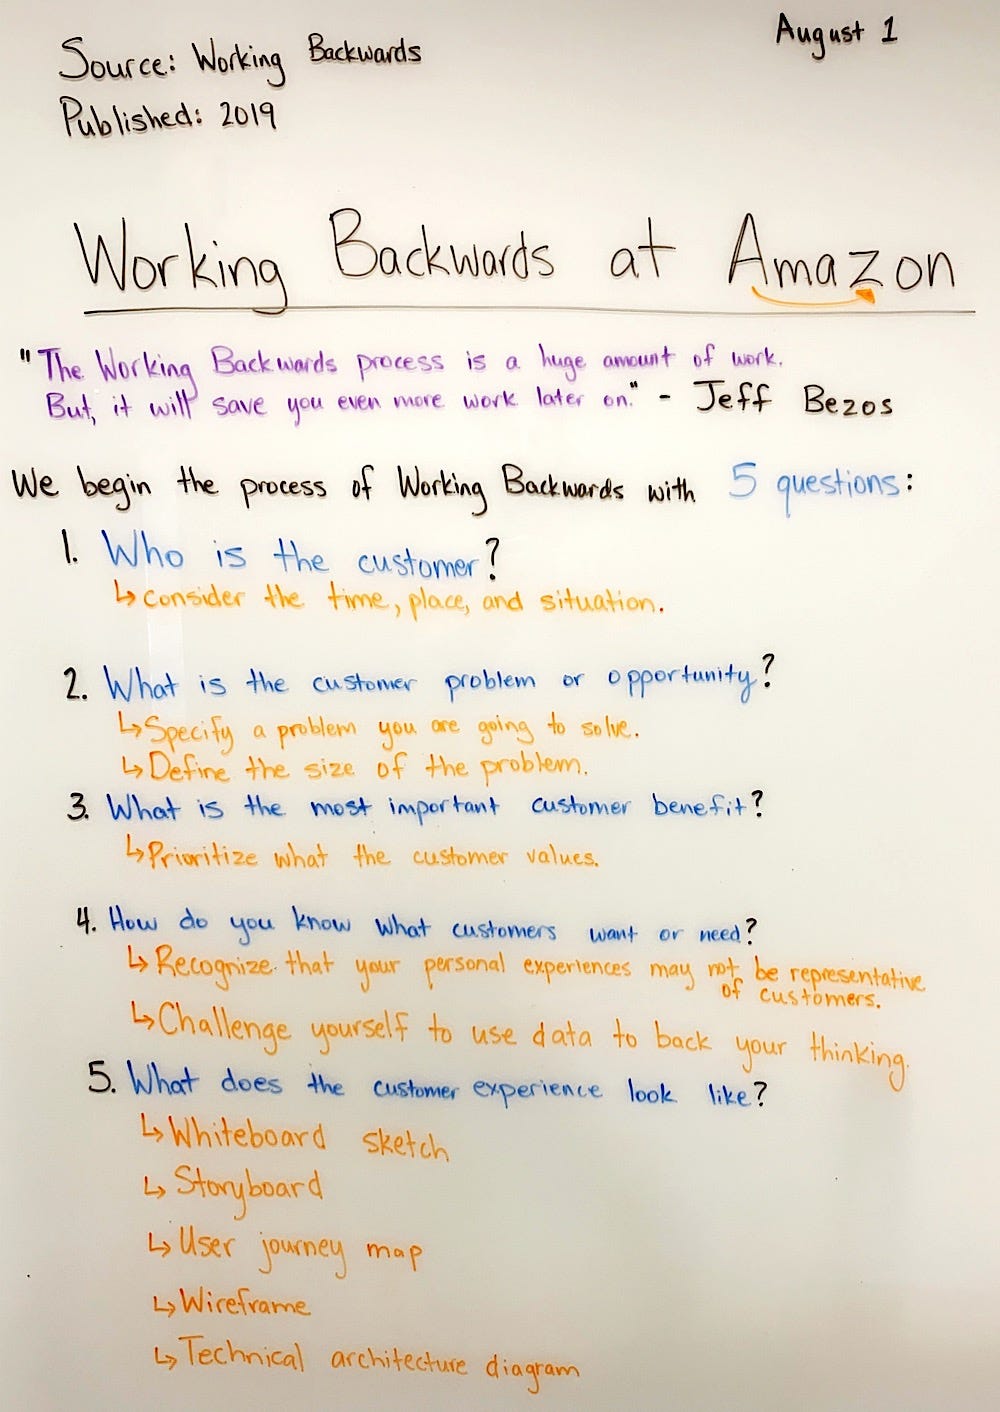 Source: Working Backwards
August 1
Published: 2019
Working Backwards at Amazon
"The Working Backwards process is a huge amount of work.
But, it will save you even more work later on." - Jeff Bezos
We begin the process of Working Backwards with 5 questions:
1. Who is the customer?
↳ consider the time, place, and situation.
2. What is the customer problem or opportunity?
↳ Specify a problem you are going to solve.
↳ Define the size of the problem.
3. What is the most important customer benefit?
↳ Prioritize what the customer values.
4. How do you know what customers want or need?
↳ Recognize that your personal experiences may not be representative
of customers.
↳ Challenge yourself to use data to back your thinking.
5. What does the customer experience look like?
↳ Whiteboard sketch
↳ Storyboard
↳ User journey map
↳ Wireframe
↳ Technical architecture diagram